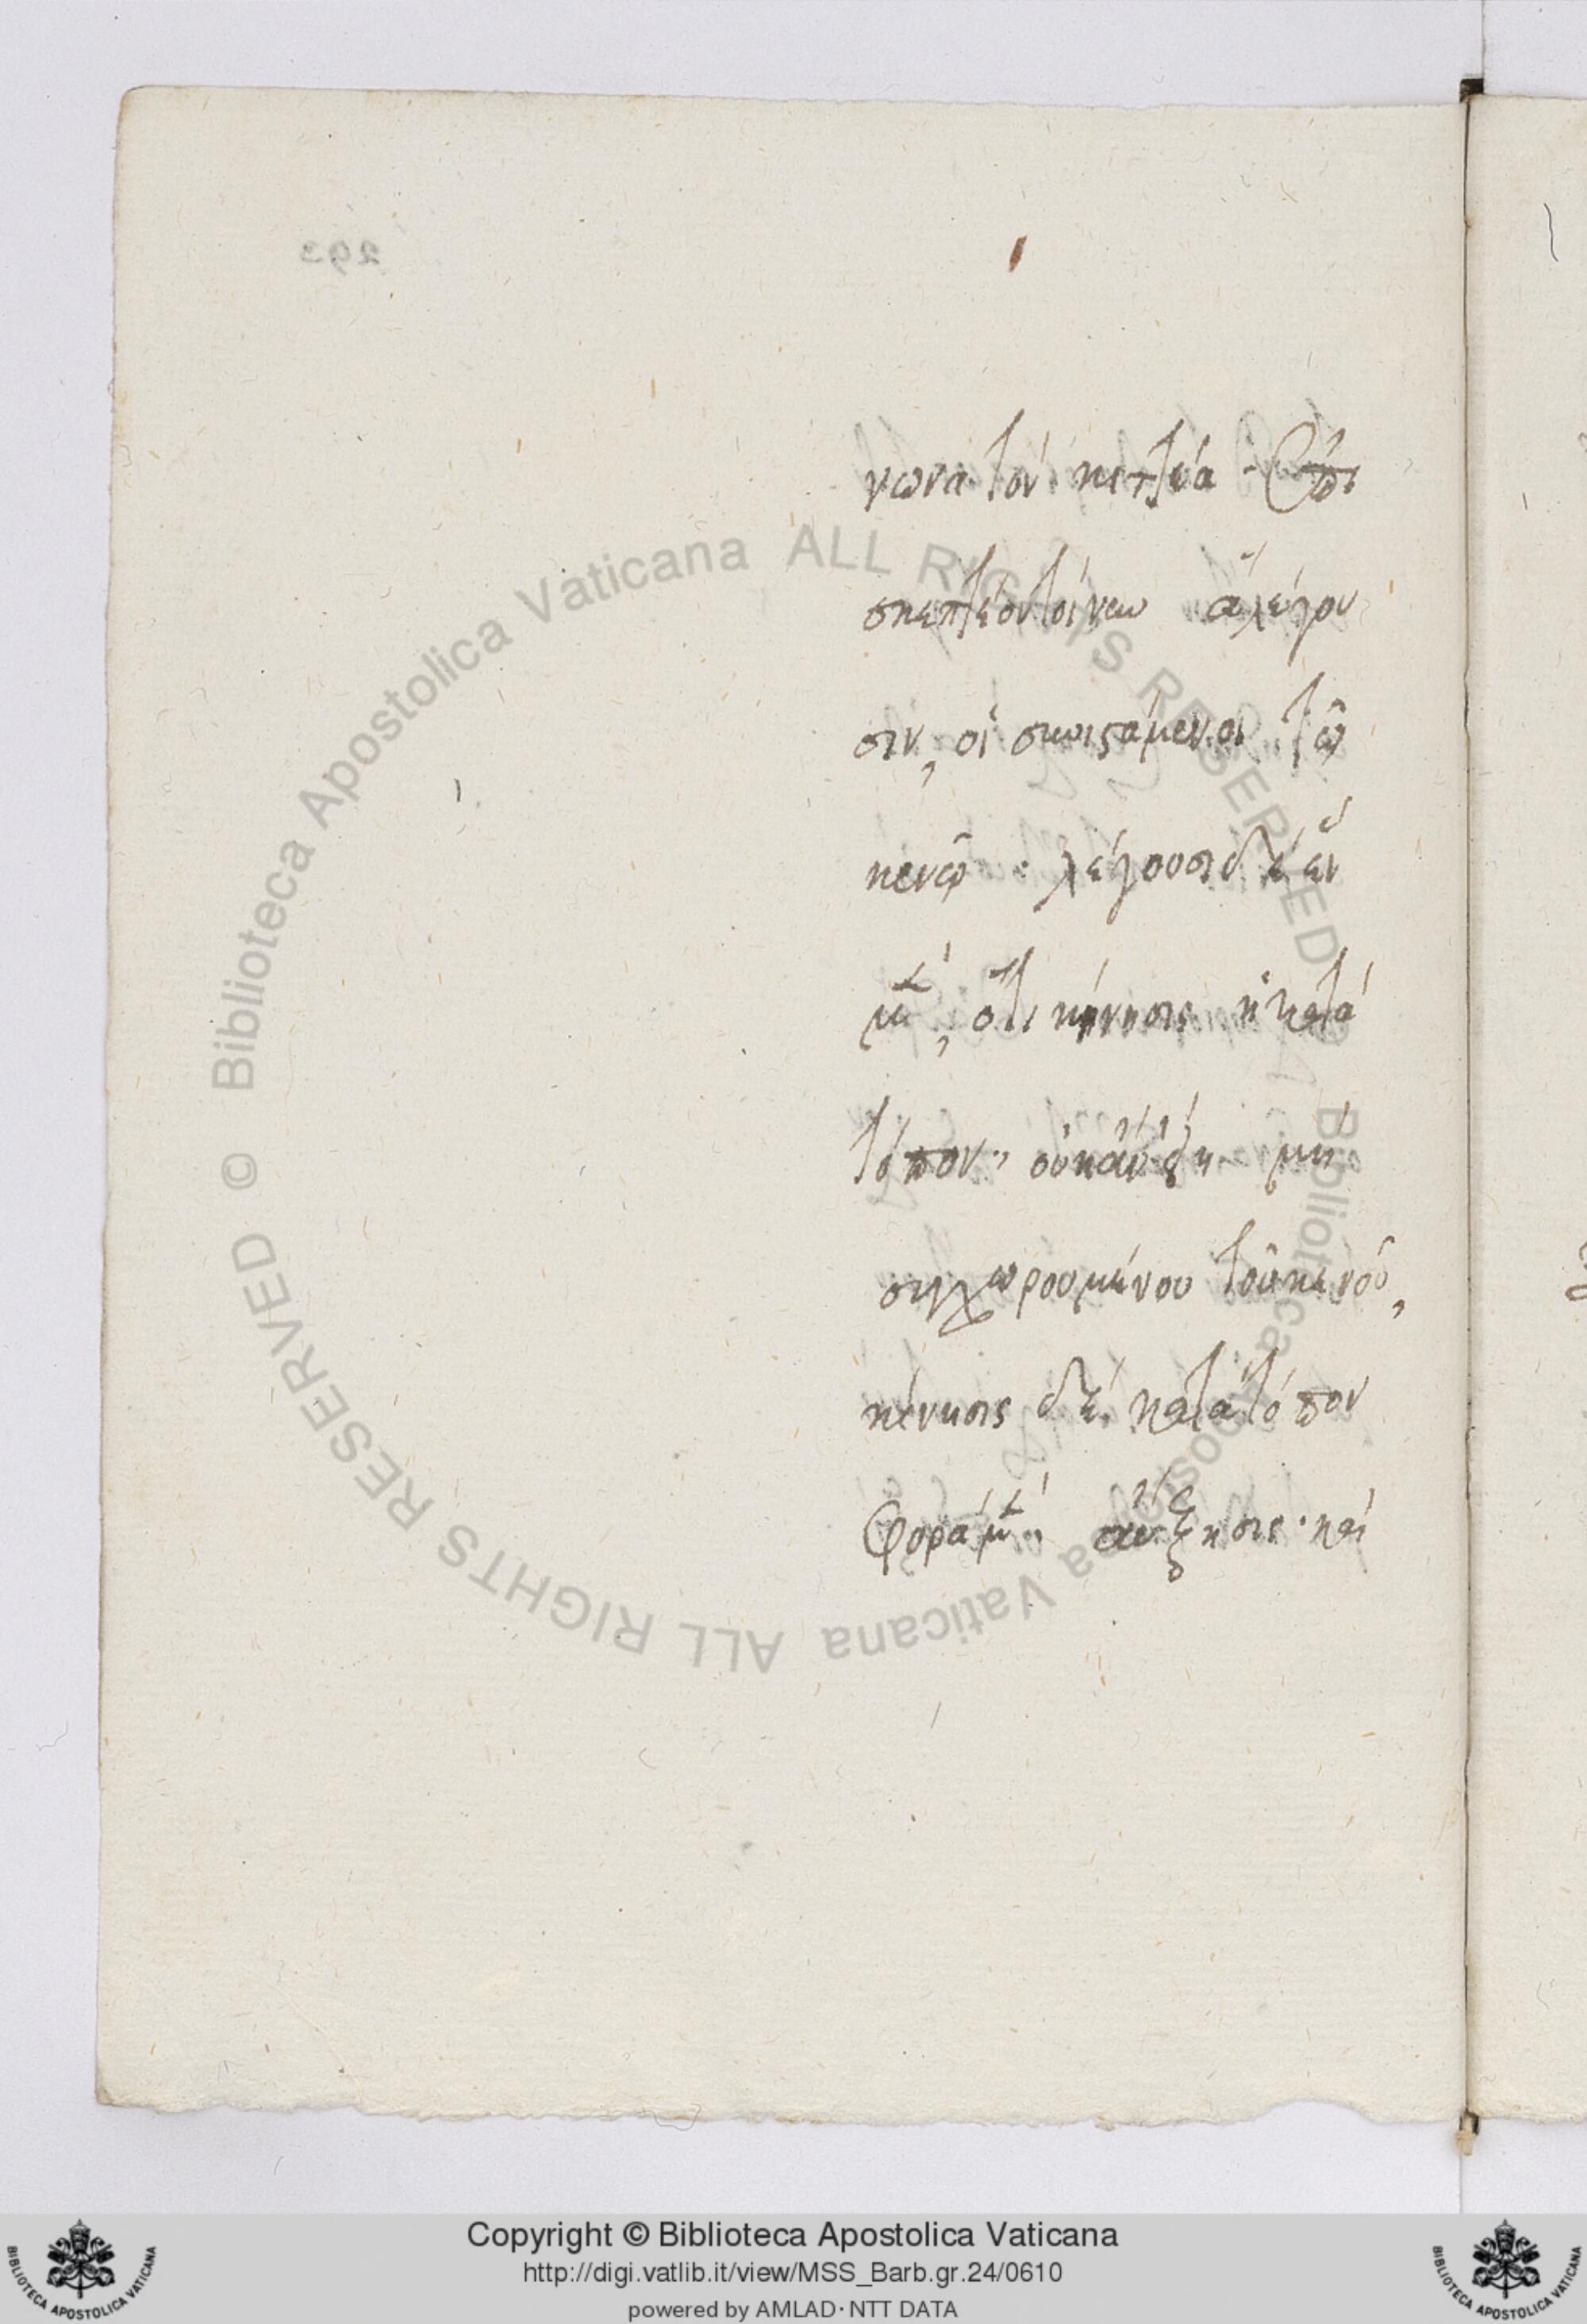 293
νωνα τόν κεττέα · Ἐπι
σκεπτέον τοίνυν ἃ λέγου
σιν, οἱ συνιςάμενοι τῶ
κενῶ · λέγουσι δὲ ἓν
μὲν, ὅτι κίνησις ἡ κατὰ
τόπον, οὐκ ἂν εἴη μὴ
συγχωρουμένου τοῦ κενοῦ,
κίνησις δὲ κατὰ τόπον
φορὰ μὲν αὔξησις · καὶ
© Biblioteca Apostolica Vaticana ALL RIGHTS RESERVED
© Biblioteca Apostolica Vaticana ALL RIGHTS RESERVED
Copyright © Biblioteca Apostolica Vaticana
http://digi.vatlib.it/view/MSS_Barb.gr.24/0610
powered by AMLAD · NTT DATA
BIBLIOTECA APOSTOLICA VATICANA
BIBLIOTECA APOSTOLICA VATICANA